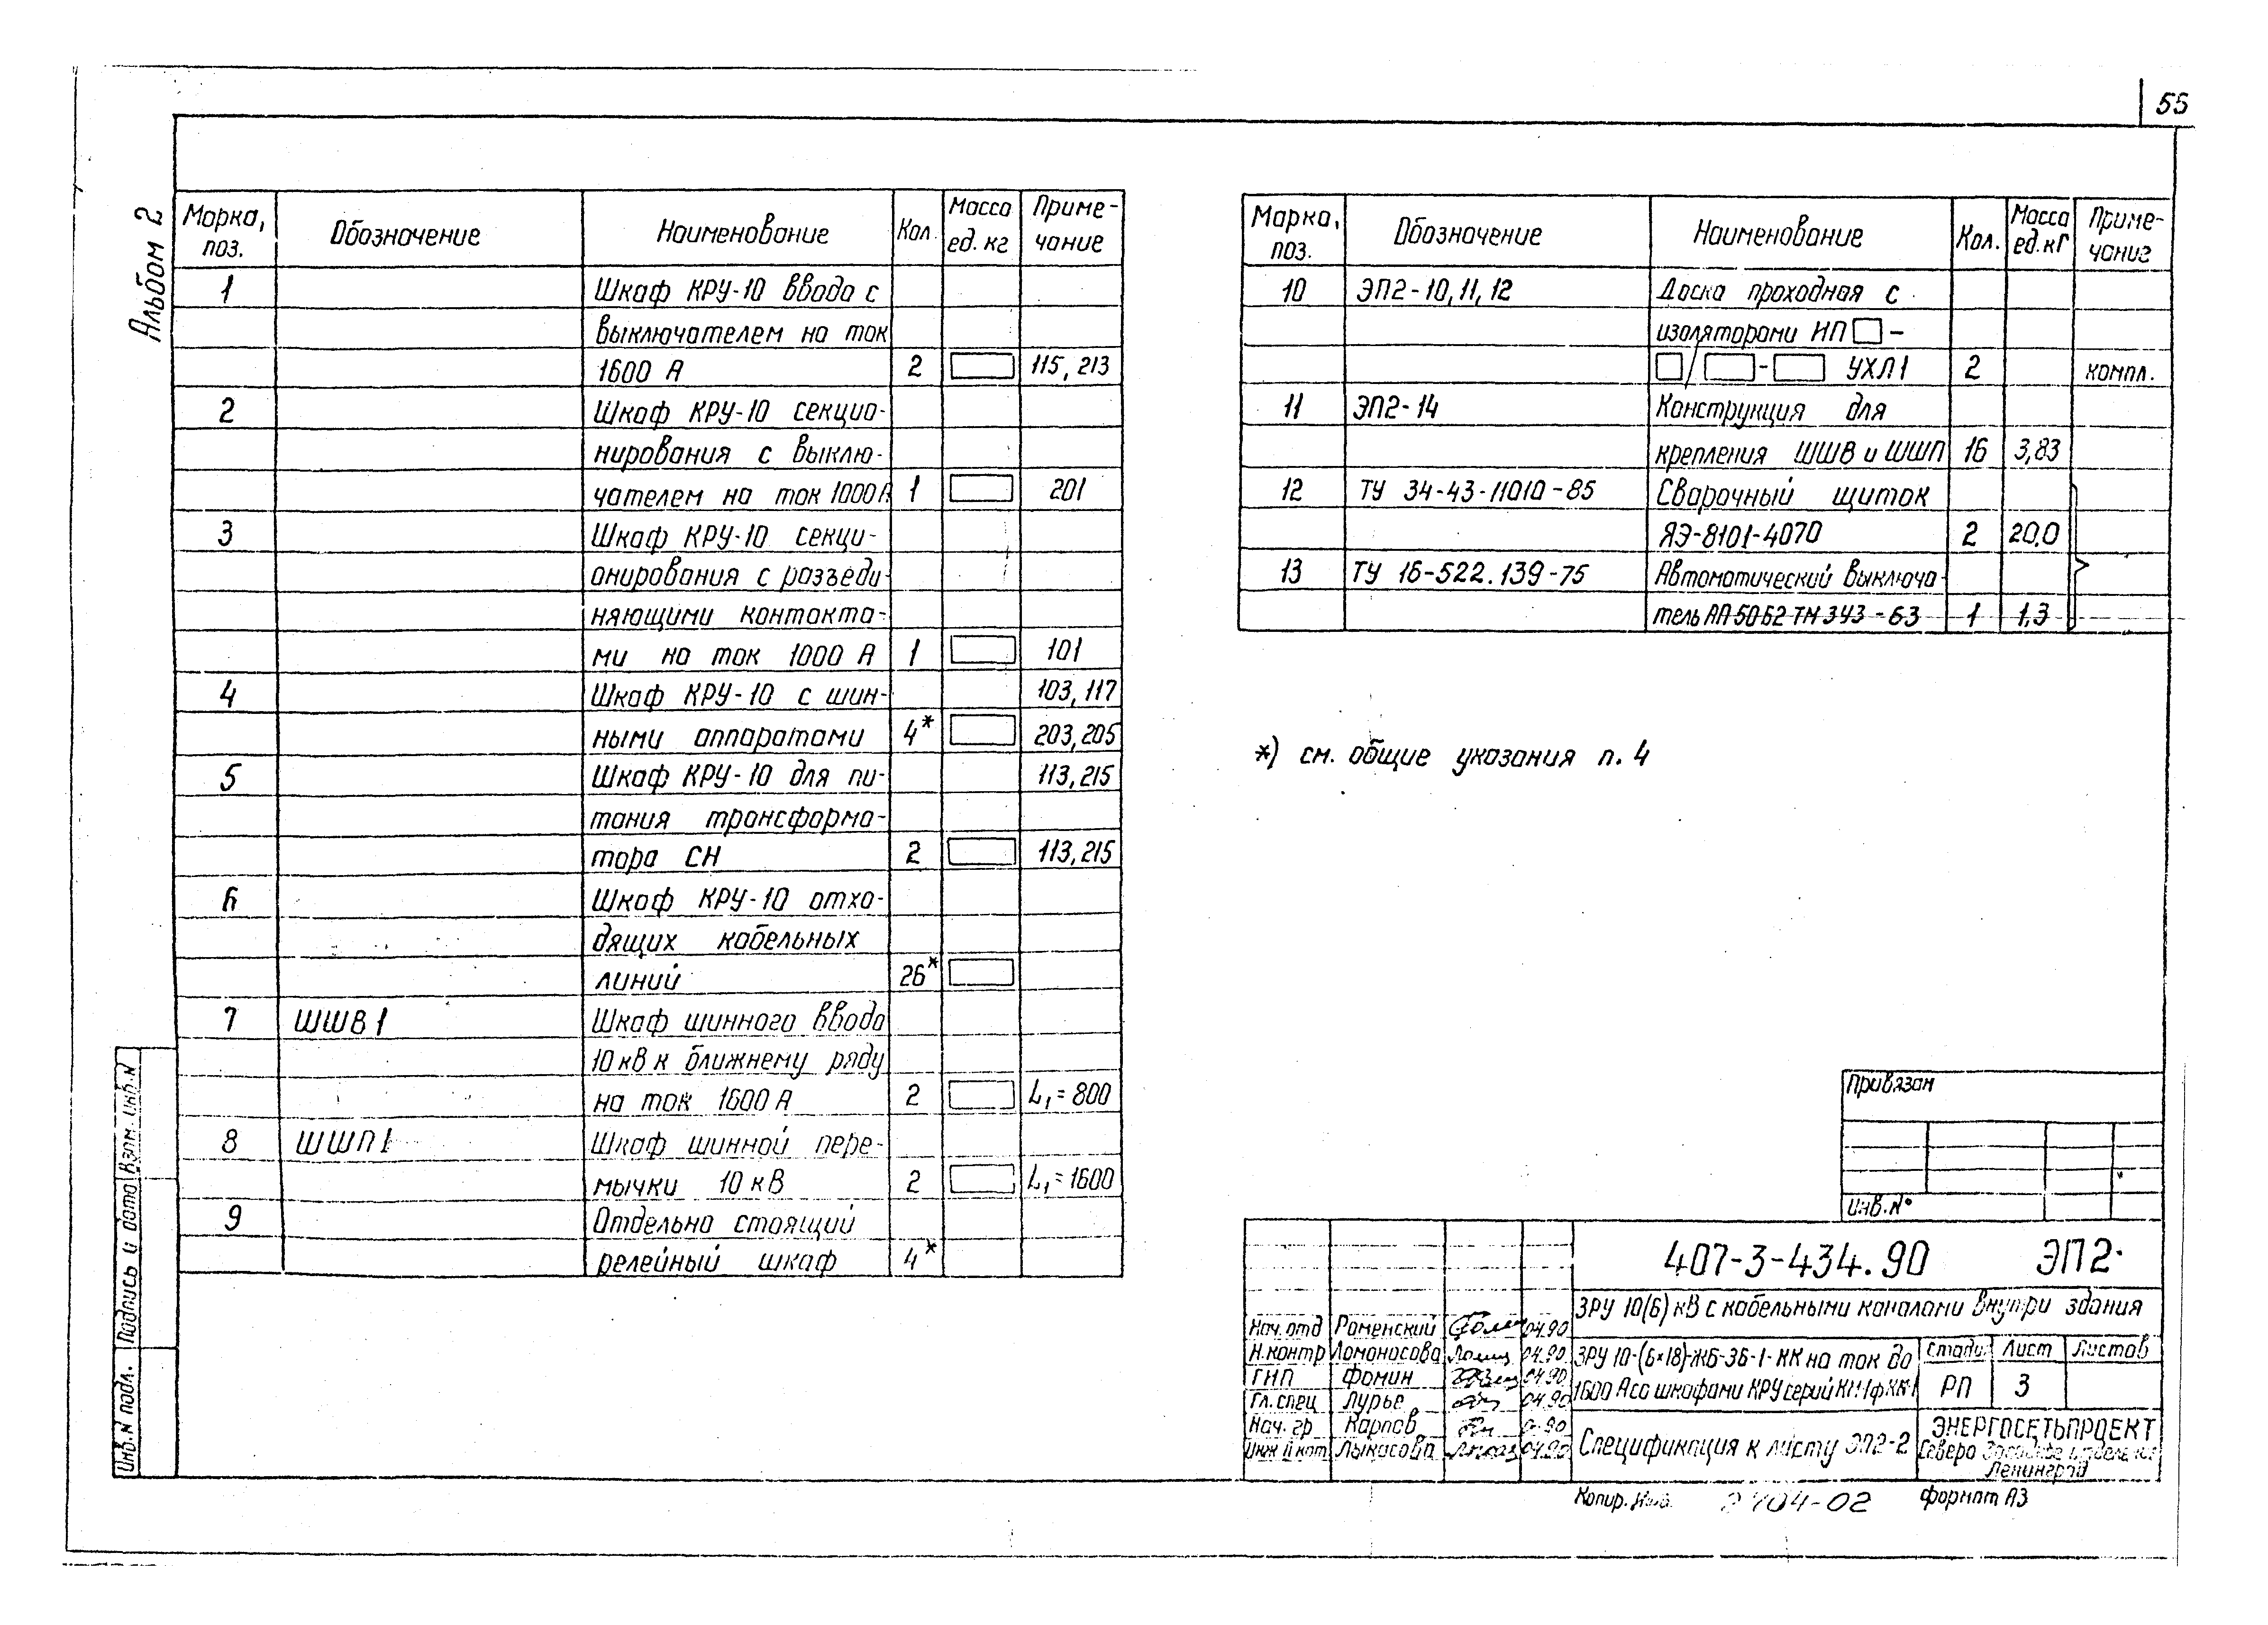 55
Альбом 2
Марка, поз. Обозначение Наименование Кол. Масса ед. кг Примечание
1 Шкаф КРУ-10 ввода с
выключателем на ток
1600 А 2 115, 213
2 Шкаф КРУ-10 секцио-
нирования с выклю-
чателем на ток 1000А 1 201
3 Шкаф КРУ-10 секци-
онирования с разъеди-
няющими контакта-
ми на ток 1000 А 1 101
4 Шкаф КРУ-10 с шин- 103, 117
ными аппаратами 4* 203, 205
5 Шкаф КРУ-10 для пи- 113, 215
тания трансформа-
тора СН 2 113, 215
6 Шкаф КРУ-10 отхо-
дящих кабельных
линий 26*
7 ШШВ1 Шкаф шинного ввода
10 кВ к ближнему ряду
на ток 1600 А 2 L₁=800
8 ШШП1 Шкаф шинной пере-
мычки 10 кВ 2 L₁=1600
9 Отдельно стоящий
релейный шкаф 4*
Марка, поз. Обозначение Наименование Кол. Масса ед. кг Примечание
10 ЭП2-10, 11, 12 Доска проходная с
изоляторами ИП□-
□/□-□ УХЛ1 2 компл.
11 ЭП2-14 Конструкция для
крепления ШШВ и ШШП 16 3,83
12 ТУ 34-43-11010-85 Сварочный щиток
ЯЭ-8101-4070 2 20,0
13 ТУ 16-522.139-75 Автоматический выключа-
тель АП50Б2ТМ3У3-63 1 1,3
*) см. общие указания п. 4
Привязан
Инв.№
407-3-434.90 ЭП2
ЗРУ 10(6) кВ с кабельными каналами внутри здания
Нач. отд Роменский 04.90
Н.контр Ломоносова 04.90
ГИП Фомин 04.90
Гл. спец Лурье 04.90
Нач. гр Карпов
Лыкасова 04.90
ЗРУ 10-(6×18)-ЖБ-36-1-КК на ток до
1600 А со шкафами КРУ серий
Стадия Лист Листов
РП 3
Спецификация к листу ЭП2-2
ЭНЕРГОСЕТЬПРОЕКТ
Северо-Западное отделение
Ленинград
Копир. формат А3
Инв.№ подл. Подпись и дата Взам. инв.№